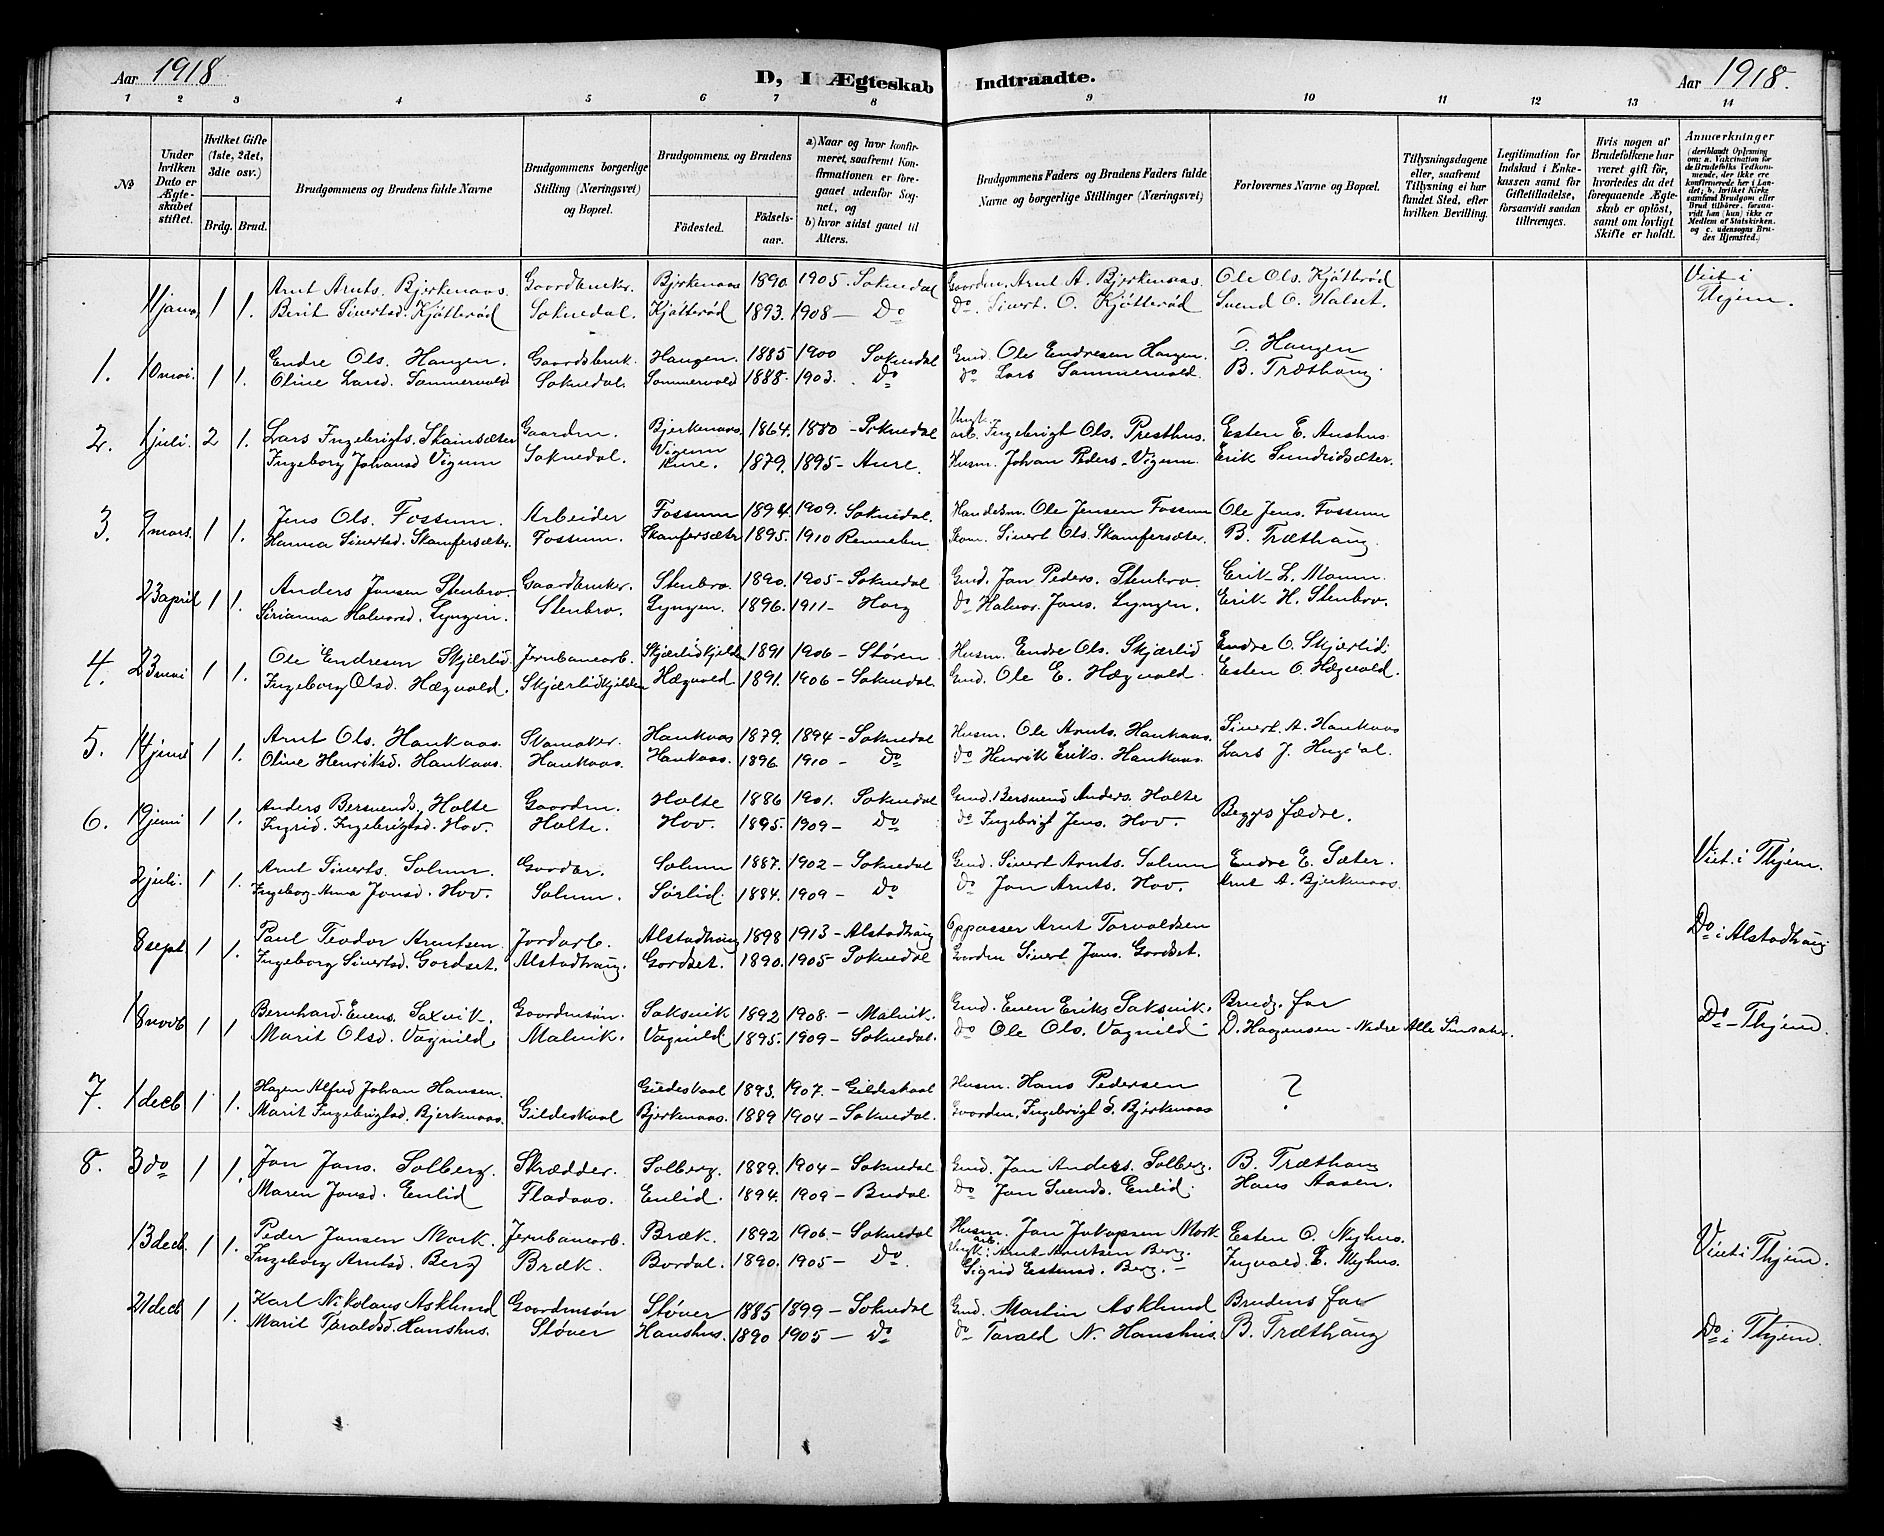 Aar 1918 D, I Ægteskab Indtraadte. Aar 1918.
1 2 3 4 5 6 7 8 9 10 11 12 13 14
No
Under hvilken Dato er Ægteskabet stiftet.
Hvilket Gifte (1ste, 2det, 3die osv.)
Brdg. Brud.
Brudgommens og Brudens fulde Navne
Brudgommens borgerlige Stilling (Næringsvei) og Bopæl.
Brudgommens. og Brudens
Födested. Födsels-aar.
a) Naar og hvor konfirmeret, saafremt Konfirmationen er foregaaet udenfor Sognet, og
b) hvor sidst gaaet til Alters.
Brudgommens Faders og Brudens Faders fulde Navne og borgerlige Stillinger (Næringsvei)
Forlovernes Navne og Bopæl.
Tillysningsdagene eller, saafremt Tillysning ei har fundet Sted, efter hvilken Bevilling.
Legitimation for Indskud i Enkekassen samt for Giftetilladelse, forsaavidt saadan tiltrænges.
Hvis nogen af Brudefolkene har været gift för, hvorledes da det foregaaende Ægteskab er oplöst, samt om lovligt Skifte er holdt.
Anmærkninger (deriblandt Oplysning om: a. Vakcination for de Brudefolks Vedkommende, der ikke ere konfirmerede her i Landet; b. hvilket Kirkesamfund Brudgom eller Brud tilhörer, forsaavidt han (hun) ikke er Medlem af Statskirken, og c. udensogns Brudes Hjemsted.)
1 janu. 1 1. Arnt Arnts. Bjerkenaas. Gaardbruker. Bjerkenaas 1890. 1905 Soknedal Gaardm. Arnt A. Bjerkenaas. Ole Ols. Kjötteröd Viet i
Berit Sivertsd. Kjötteröd Soknedal. Kjötteröd 1893. 1908 — Do Do. Sivert O. Kjötteröd Svend O. Halset. Thjem.
1. 10 mai. 1 1. Endre Ols. Haugen. Gaardsbruk. Haugen. 1885 1900 Soknedal Gmd. Ole Endresen Haugen. O. Haugen
Oline Larsd. Sommervold Soknedal. Sommervold 1888. 1903. Do do Lars Sommervold. B. Træthaug.
2. 1 juli. 2 1. Lars Ingebrigts. Skainsæter Gaardm. Bjerkenaas. 1864. 1880 - Soknedal Ungk. arb. Ingebrigt Ols. Presthus. Esten E. Aushus
Ingeborg Johansd Vigum Soknedal. Vigum Aure. 1879. 1895 - Aure. Husm. Johan Peders. Vigum. Erik Sundridsæter.
3. 9 mars. 1 1. Jens Ols. Fossum. Arbeider Fossum 1894. 1909. Soknedal. Handelsm. Ole Jensen Fossum Ole Jens. Fossum
Hanna Sivertsd. Skamfersæter. Fossum. Skamfersæter 1895. 1910 Rennebu Skom. Sivert Ols. Skamfersæter. B. Træthaug.
23 april 1 1. Anders Jonsen Stenbro. Gaardbruker. Stenbro. 1890. 1905 - Soknedal Gmd. Jon Peders. Stenbro. Erik L. Moum.
Sirianna Halvorsd. Lyngen. Stenbro. Lyngen. 1896. 1911 - Horg do Halvor Jons. Lyngen. Erik H. Stenbro.
4. 23 mai 1 1. Ole Endresen Skjærlid. Jernbanearb. Skjærlidkjelden 1891 1906 - Støren Husm. Endre Ols. Skjærlid Endre O. Skjærlid.
Ingeborg Olsd. Hægvold. Skjærlidkjelden Hægvold 1891. 1906 - Soknedal. Gmd. Ole E. Hægvold. Esten O. Hægvold.
5. 14 juni 1 1. Arnt Ols. Haukaas. Skomaker. Haukaas 1879. 1894 - Soknedal Husm. Ole Arnts. Haukaas. Sivert A. Haukaas
Oline Henriksd. Haukaas. Haukaas. Haukaas. 1896. 1910 - Do do Henrik Eriks. Haukaas. Lars J. Hugdal.
6. 19 juni 1 1. Anders Bersvends. Holte Gaardm. Holte 1886 1901. Soknedal Gmd. Bersvend Anders. Holte Begges fædre.
Ingrid. Ingebrigtsd. Hov. Holte. Hov. 1895. 1909 - Do do Ingebrigt Jens. Hov.
2 juli. 1 1. Arnt Siverts. Solum. Gaardbr. Solum 1887. 1902 - Soknedal Gmd. Sivert Arnts. Solum Endre E. Sæter. Viet i Thjem.
Ingeborg Anna Jonsd. Hov. Solum. Sörlid. 1884. 1909 - Do Do Jon Arnts. Hov. Arnt A. Bjerkenaas.
8 sept. 1 1. Paul Teodor Arnutsen. Jordarb. Alstadhaug 1898 1913 - Alstadhaug Oppasser Arnt Torvaldsen Do i Alstadhaug
Ingeborg Sivertsd. Gordset. Alstadhaug. Gordset. 1890. 1905 - Soknedal Gaardm Sivert Jons. Gordset.
18 novb 1 1 Bernhard Evens. Saxvik. Gaardmsön. Saksvik 1892 1908. - Malvik. Gmd. Even Eriks Saksvik. Brudg. far Do - Thjem.
Marit Olsd. Vagnild. Malvik. Vagnild 1895. 1909 - Soknedal. Do Ole Ols. Vagnild. D. Haagensen - Nedre Alle
7. 1 decb 1 1. Hagen Alfred Johan Hansen. Gildeskaal 1893. 1907. - Gildeskaal Husm. Hans Pedersen ?
Marit Ingebrigtsd. Bjerkenaas. Gildeskaal Bjerkenaas. 1889 1904 - Soknedal. Gaardm. Ingebrigt S. Bjerkenaas
8. 3 do 1 1. Jon Jons. Solberg. Skrædder. Solberg. 1889. 1904 - Soknedal Gmd. Jon Anders. Solberg. B. Træthaug
Maren Jonsd. Enlid Fladaas. Enlid. 1894. 1909 - Budal. Do Jon Svends. Enlid. Hans Aasen.
13 decb. 1 1. Peder Jonsen Mork. Jernbanearb. Bræk. 1892 1906. - Soknedal Husm. Jon Jakopsen Mork Esten O. Nyhus. Viet i Thjem.
Ingeborg Arntsd. Berg Bræk. Bordal. 1890. 1905 - Do. Ungk: arb. Arnt Arntsen Berg. Ingvald E. Nyhus.
Sigrid Estensd. Berg. -
21 decb 1 1. Karl Nikolaus Asklund Gaardmsön Støver 1885 1899 - Soknedal Gmd. Martin Asklund Brudens far
Marit Taraldsd. Hanshus. Støver Hanshus. 1890 1905 - Do do Tarald N. Hanshus. B. Træthaug Do i Thjem.